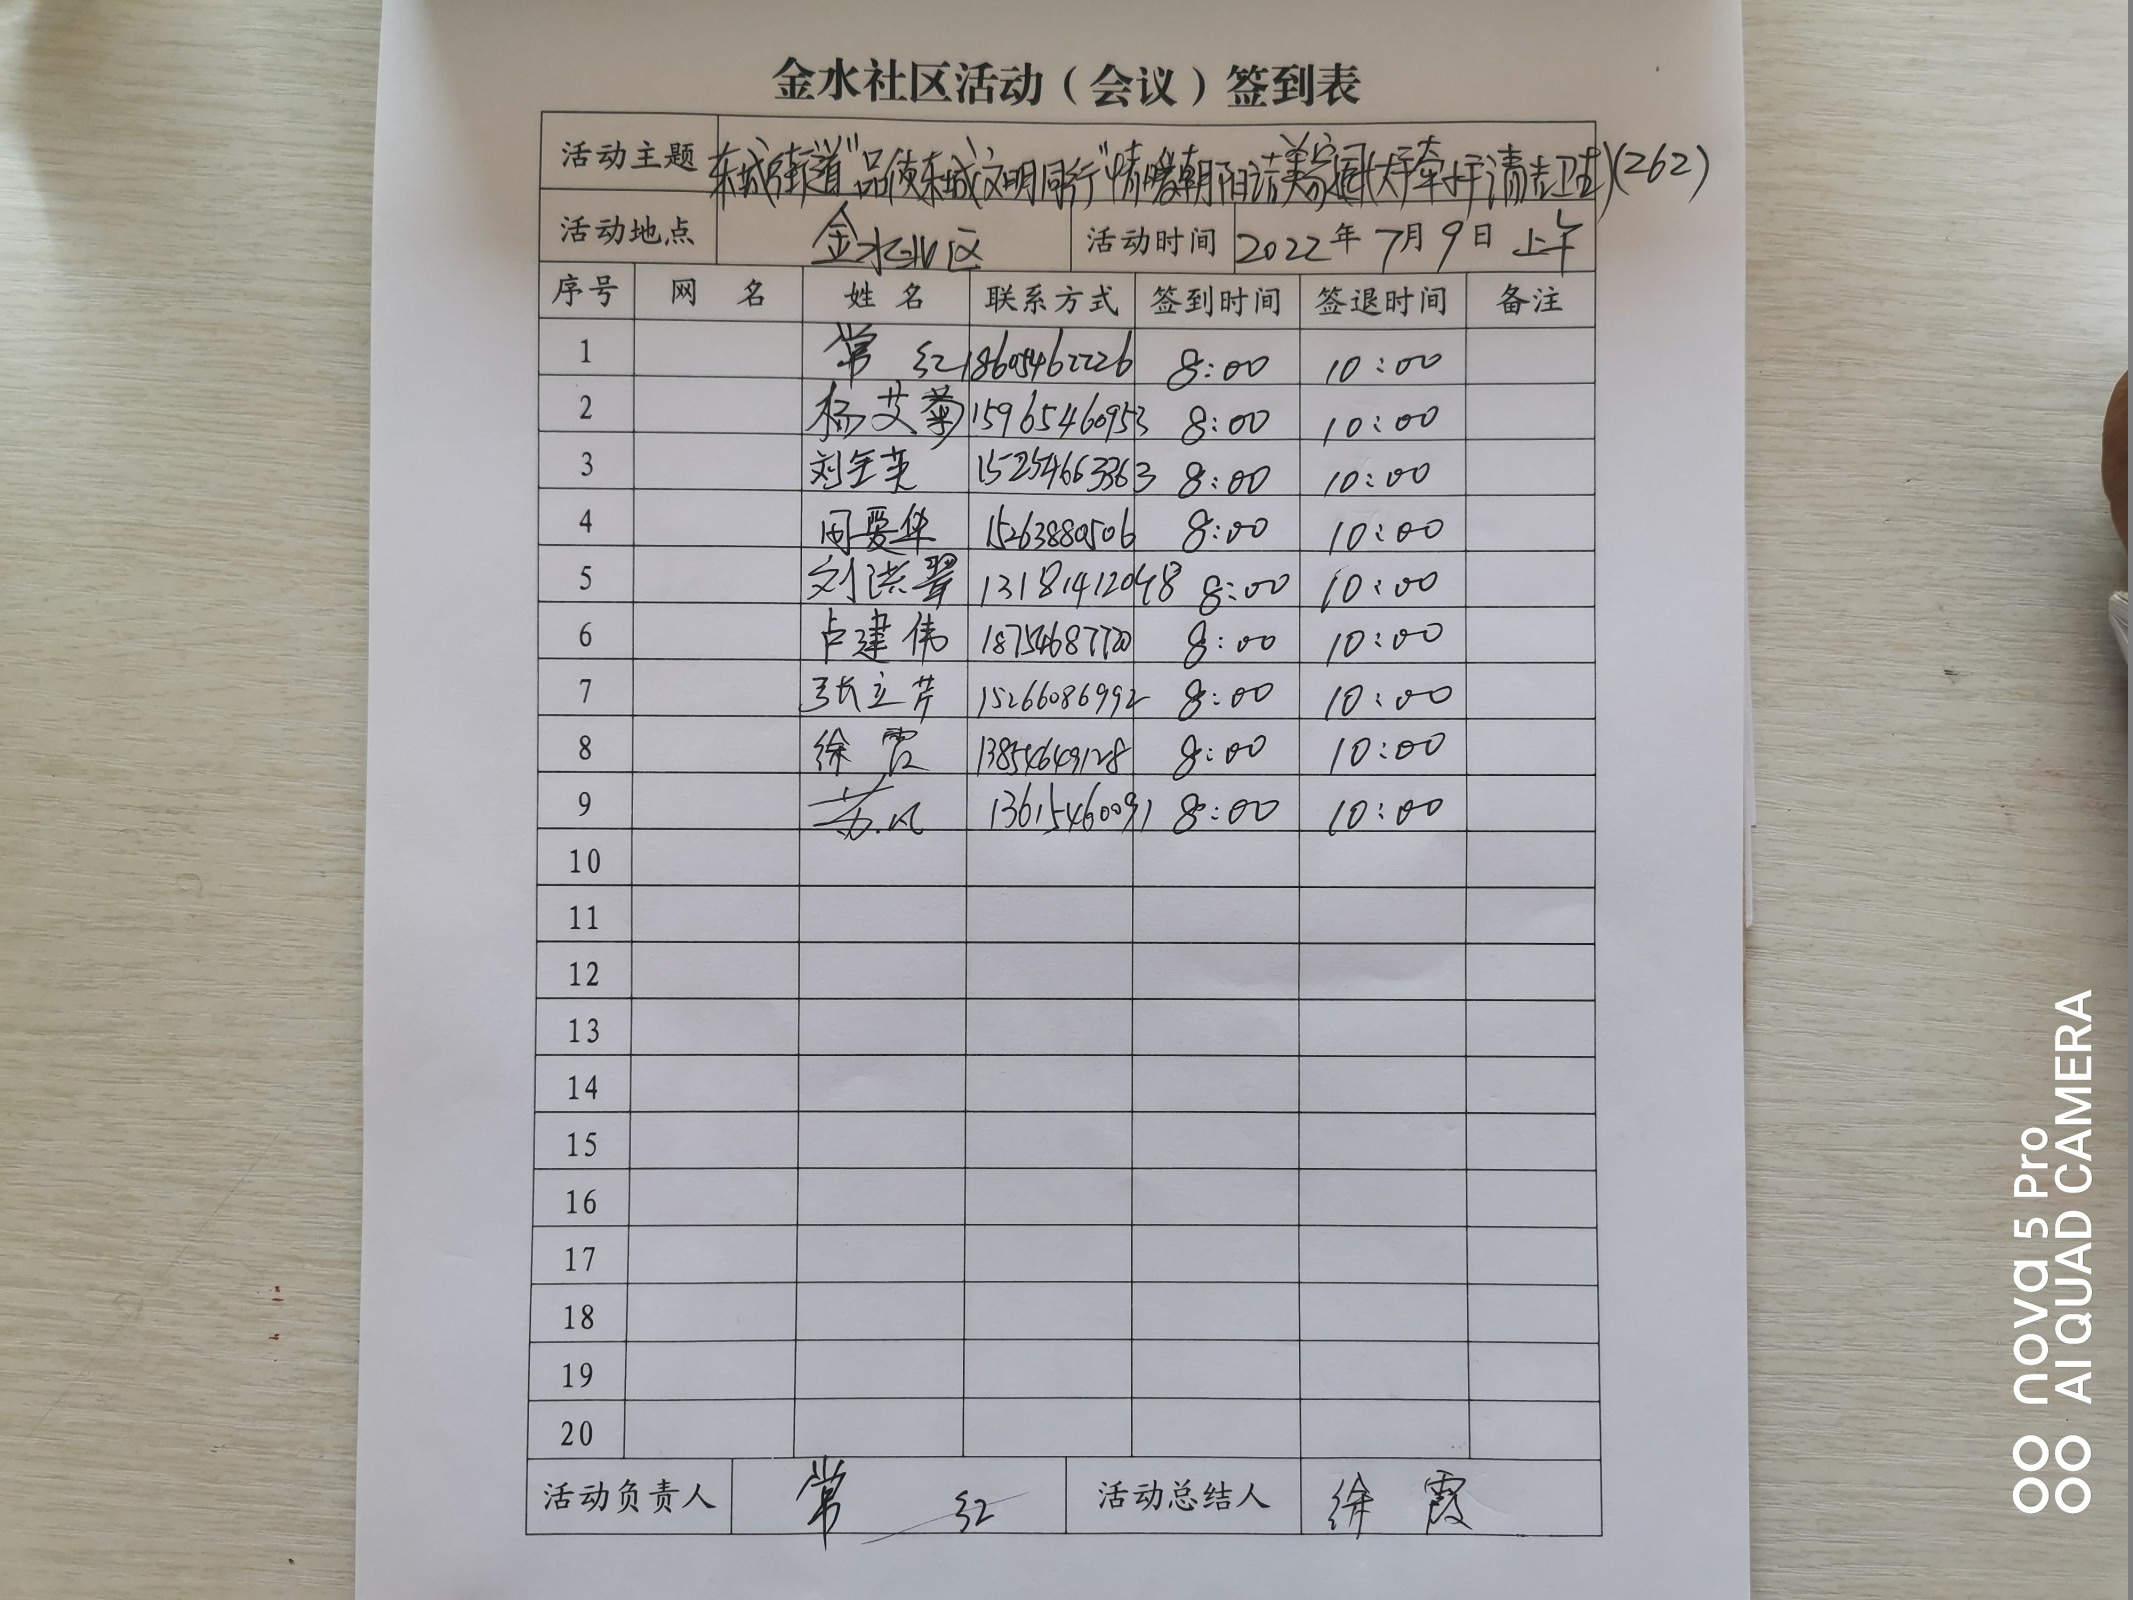 金水社区活动（会议）签到表
活动主题 东城街道"品质东城文明同行"情暖朝阳洁美家园(大手牵小手清洁卫生)(262)
活动地点 金水北区 活动时间 2022年7月9日上午
序号 网 名 姓 名 联系方式 签到时间 签退时间 备注
1 常 红 18605462226 8:00 10:00
2 杨艾菊 15965460953 8:00 10:00
3 刘全英 15254663363 8:00 10:00
4 周爱华 15263880506 8:00 10:00
5 刘洪翠 13181412048 8:00 10:00
6 卢建伟 18754687720 8:00 10:00
7 张立芹 15266086992 8:00 10:00
8 徐 霞 13854649128 8:00 10:00
9 苏凤 13615460091 8:00 10:00
10
11
12
13
14
15
16
17
18
19
20
活动负责人 常 红 活动总结人 徐 霞
nova 5 Pro
AI QUAD CAMERA